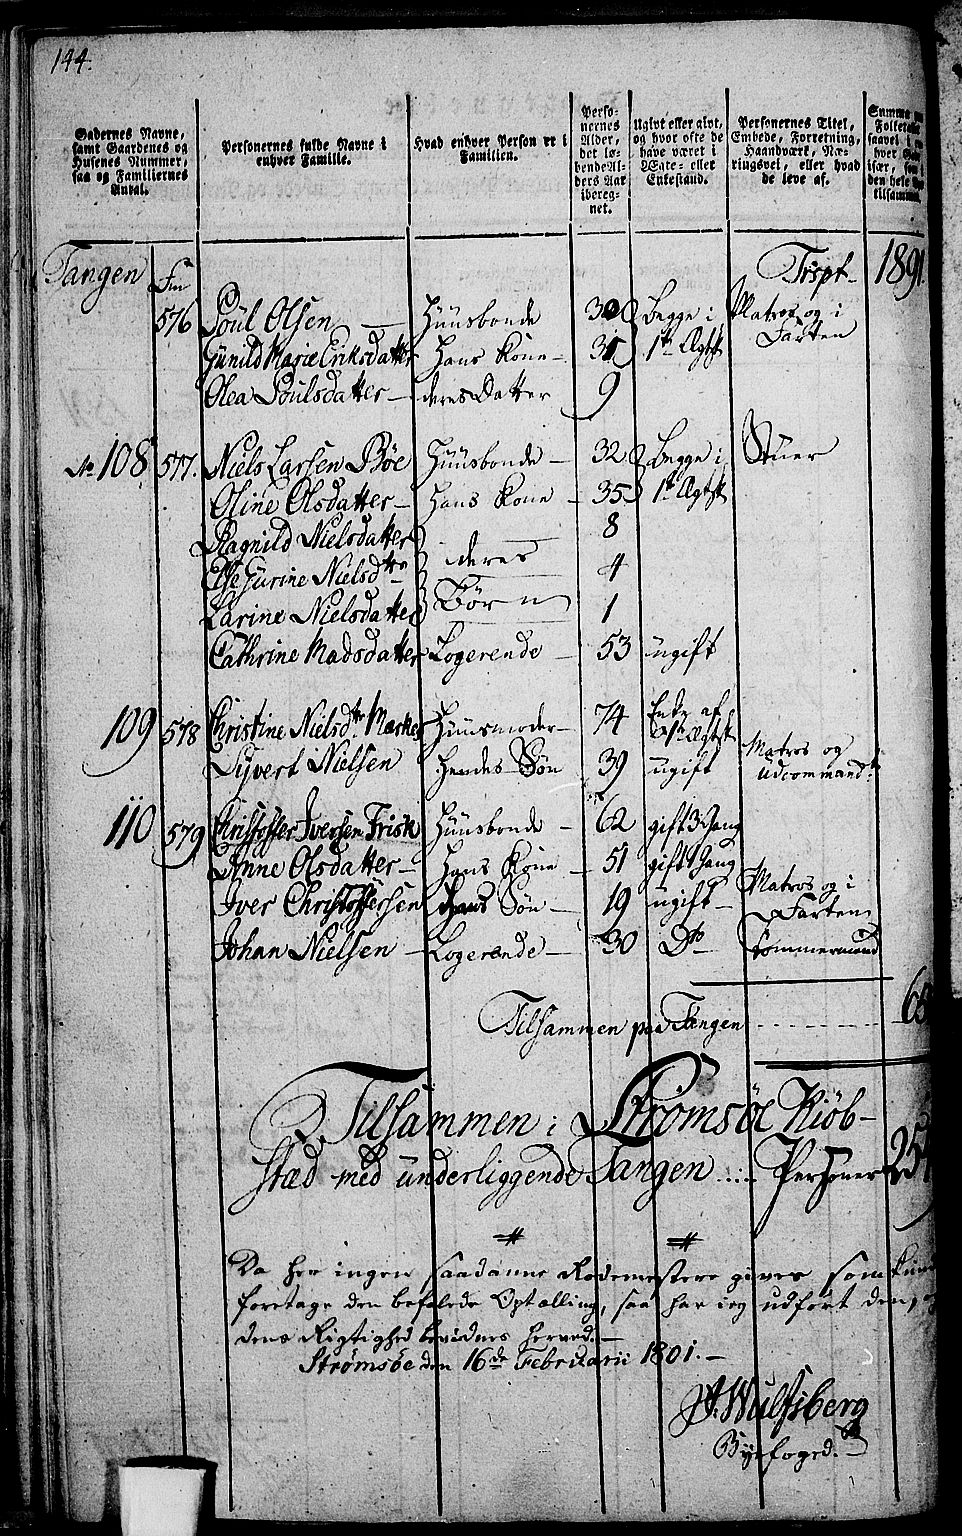 144.
Gadernes Navne, samt Gaardenes og Husenes Nummer, saa og Familiernes Antal.
Personernes fulde Navne i enhver Familie.
Hvad enhver Person er i Familien.
Personernes Alder, det løbende Alders Aar iberegnet.
Ugivt eller givt, og hvor ofte de have været i Ægte- eller Enkestand.
Personernes Titel, Embede, Forretning, Haandværk, Næringsvei, eller hvad de leve af.
Tangen Trspt 1891.
576 Poul Olsen — Huusbonde 30 Begge i Matros og i
Gunild Marie Eriksdatter Hans Kone 31 1te Ægtsk Farten
Olea Poulsdatter — deres Datter 9
No 108 577. Niels Larsen Bøe Huusbonde — 32 Begge i Stuer
Oline Olsdatter — Hans Kone — 35 1te Ægtsk
Ragnild Nielsdatter 8
Else Gurine Nielsdtr deres 4
Larine Nielsdatter Børn 1
Cathrine Madsdatter Logerende — 53 ugift
109 578 Christine Nielsdtr Huusmoder — 74 Enke af 1te Ægtsk
Syvert Nielsen Hendes Søn 39 ugift Matros og udcommandt.
110 579 Christoffer Iversen Frisk Huusbonde — 62 gift 3 Gang
Anne Olsdatter — Hans Kone — 51 gift 1 Gang
Iver Christoffersen Hans Søn — 19 ugift — Matros og i Farten
Johan Nielsen — Logerende — 30 Do Tømmermand
Tilsammen paa Tangen
Tilsammen i Strømsøe Kiøb-
stad med underliggende Tangen Personer
Da her ingen saadanne Rodemestere gives som
foretage den befalede Optælling, saa har ieg udført den,
dens Rigtighed bevidnes herved. —
Strømsøe den 16de Februarii 1801. —
Wulfsberg
Byefoged. —